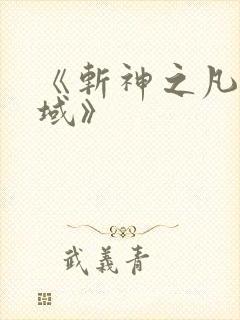 《斬神之凡
域》
武義青